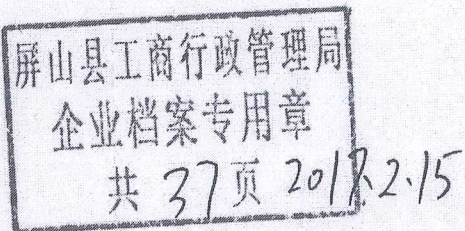 屏山县工商行政管理局
企业档案专用章
共 37 页 2017.2.15